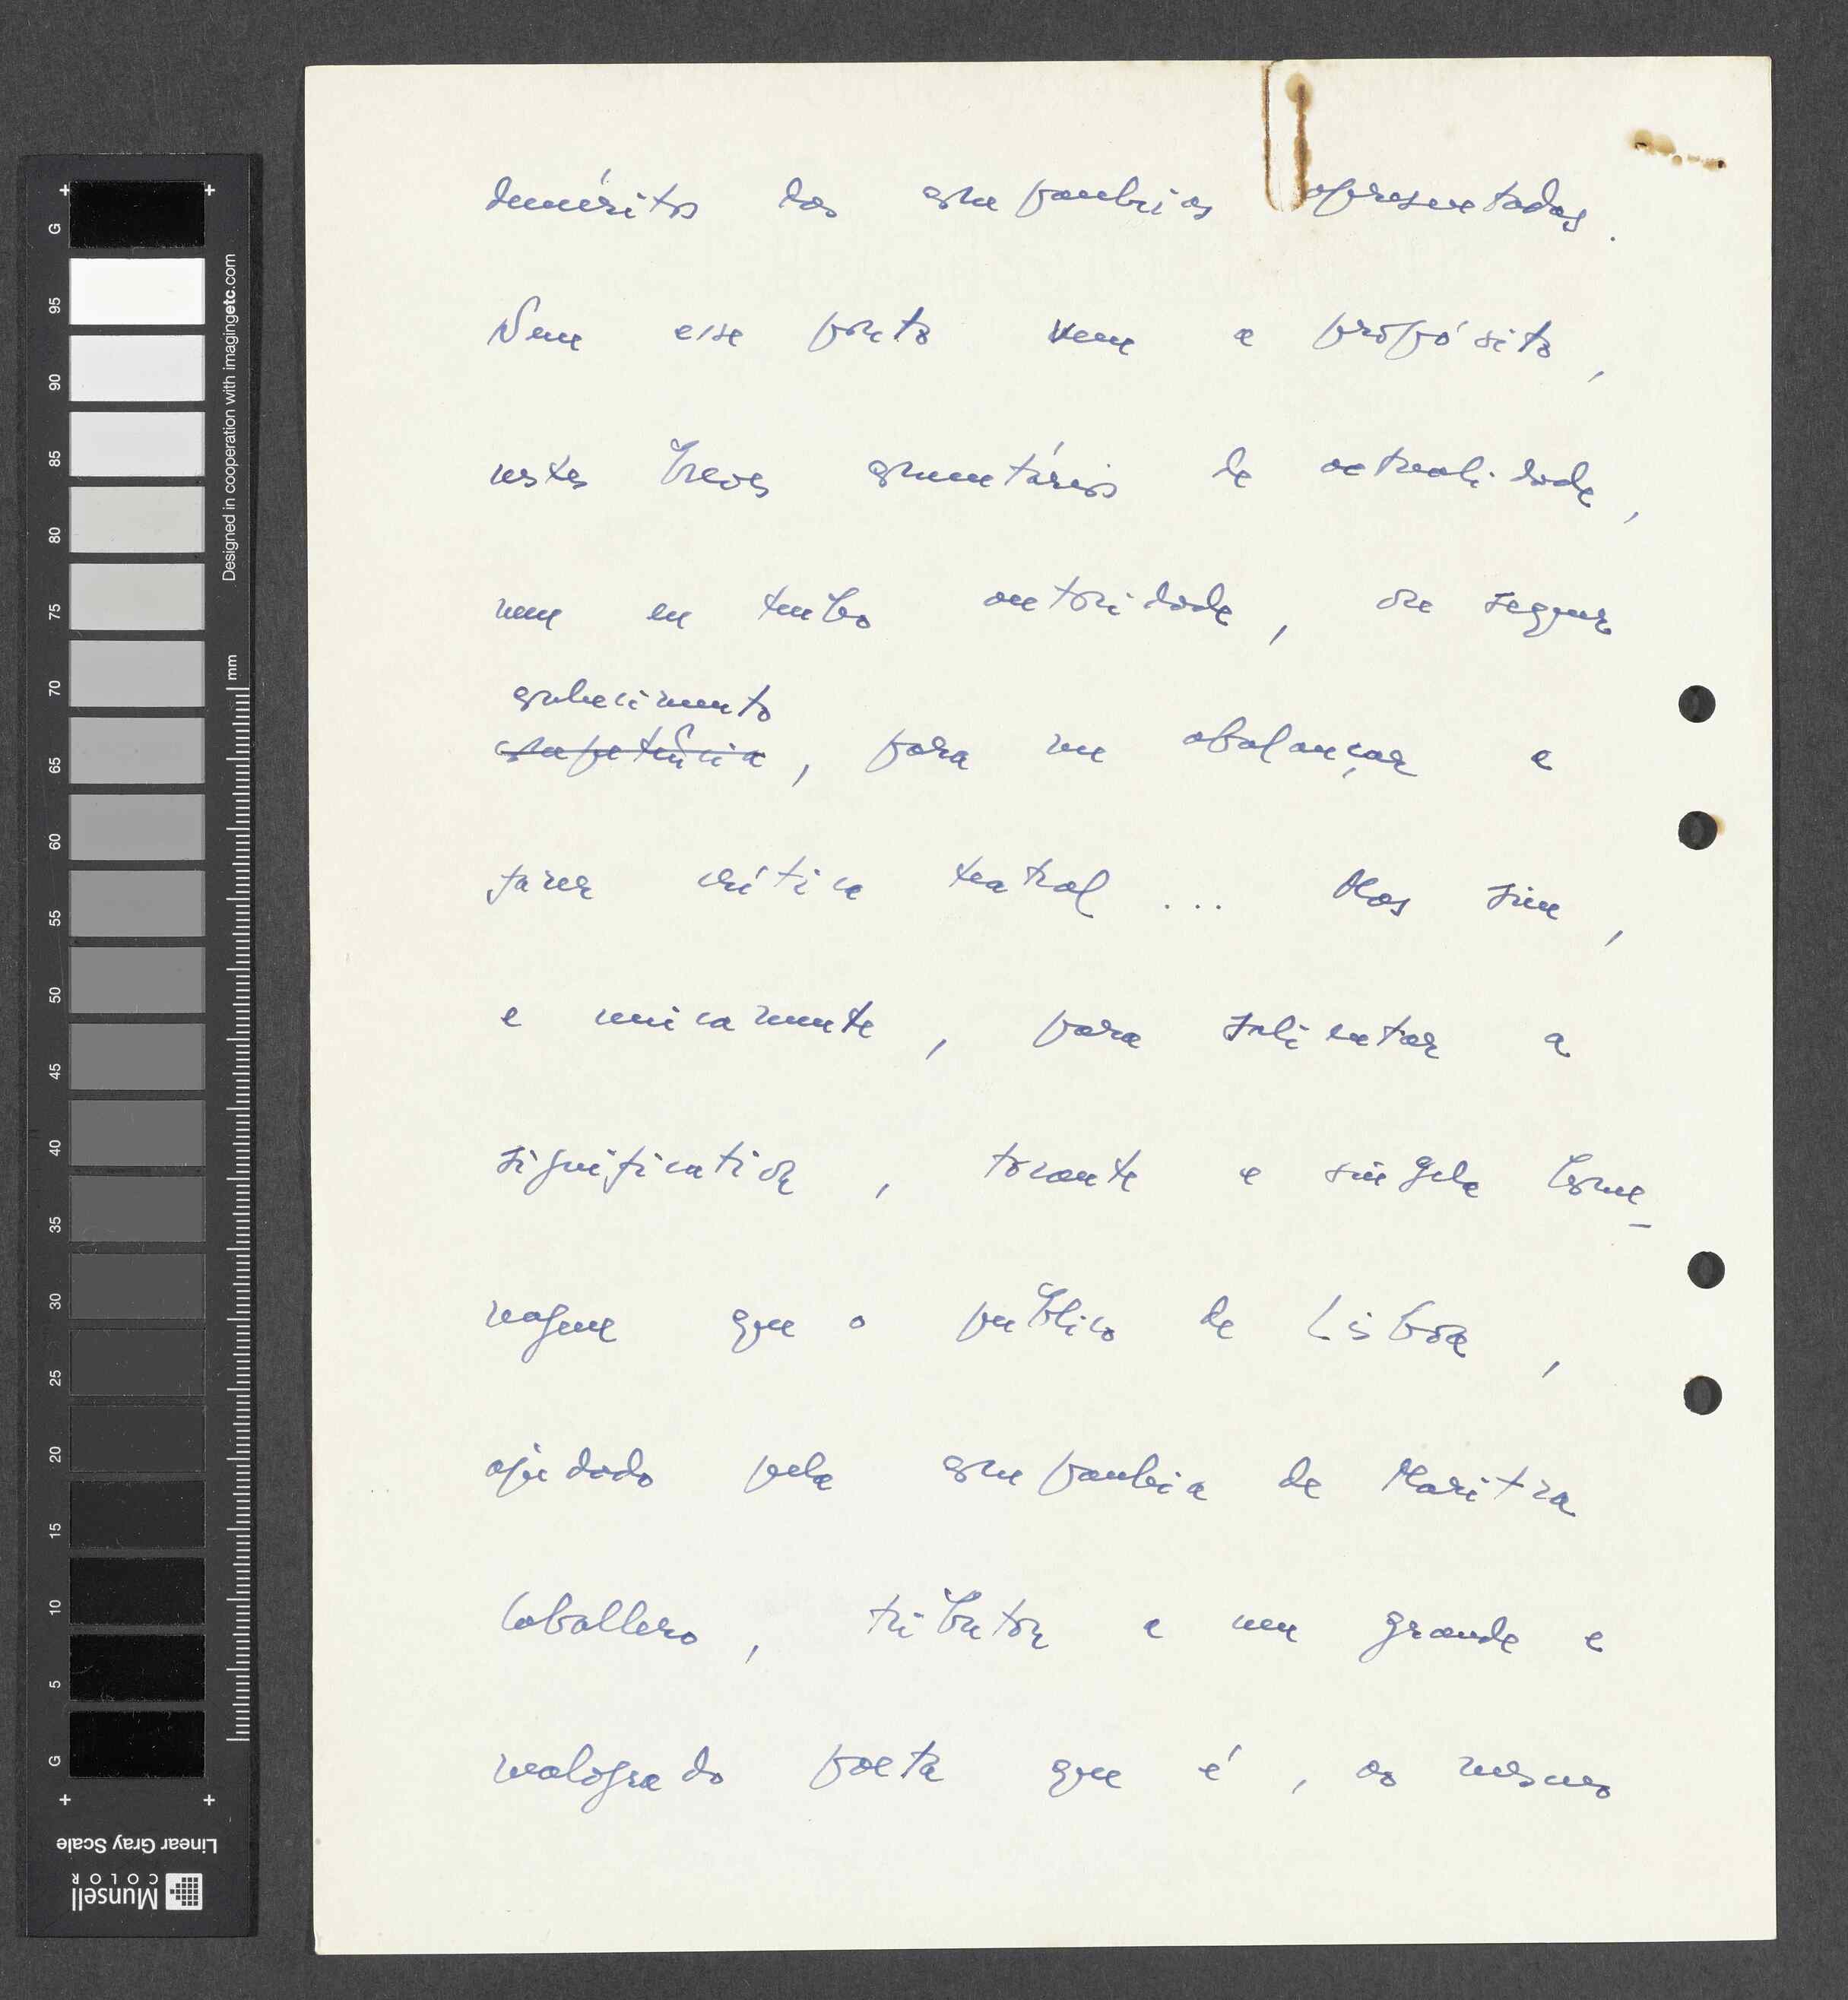 deméritos das companhias apresentadas.
Nem esse ponto vem a propósito,
nestes breves comentários de actualidade,
nem eu tenho autoridade, ou sequer
conhecimento
competência, para me abalançar a
fazer crítica teatral... Mas sim,
e unicamente, para salientar a
significativa, tocante e singela home-
nagem que o público de Lisboa,
ajudado pela companhia de Maritza
Caballero, tributou a um grande e
malogrado poeta que é, ao mesmo
G
95
90
85
80
75
70
65
60
55
50
45
40
35
30
25
20
15
10
5
G
Designed in cooperation with imagingetc.com
mm
Linear Gray Scale
Munsell
COLOR